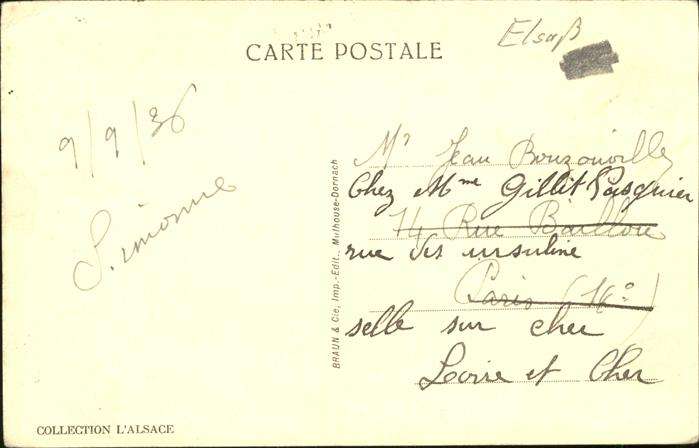 Elsaß
CARTE POSTALE
9/9/36
Simonne
BRAUN & Cie, Imp.-Edit., Mulhouse-Dornach
Mr Jean Bouzonville
Chez Mme Gillit Pasquier
14 Rue Baillou
rue des ursuline
Paris (14°)
selle sur cher
Loire et Cher
COLLECTION L'ALSACE